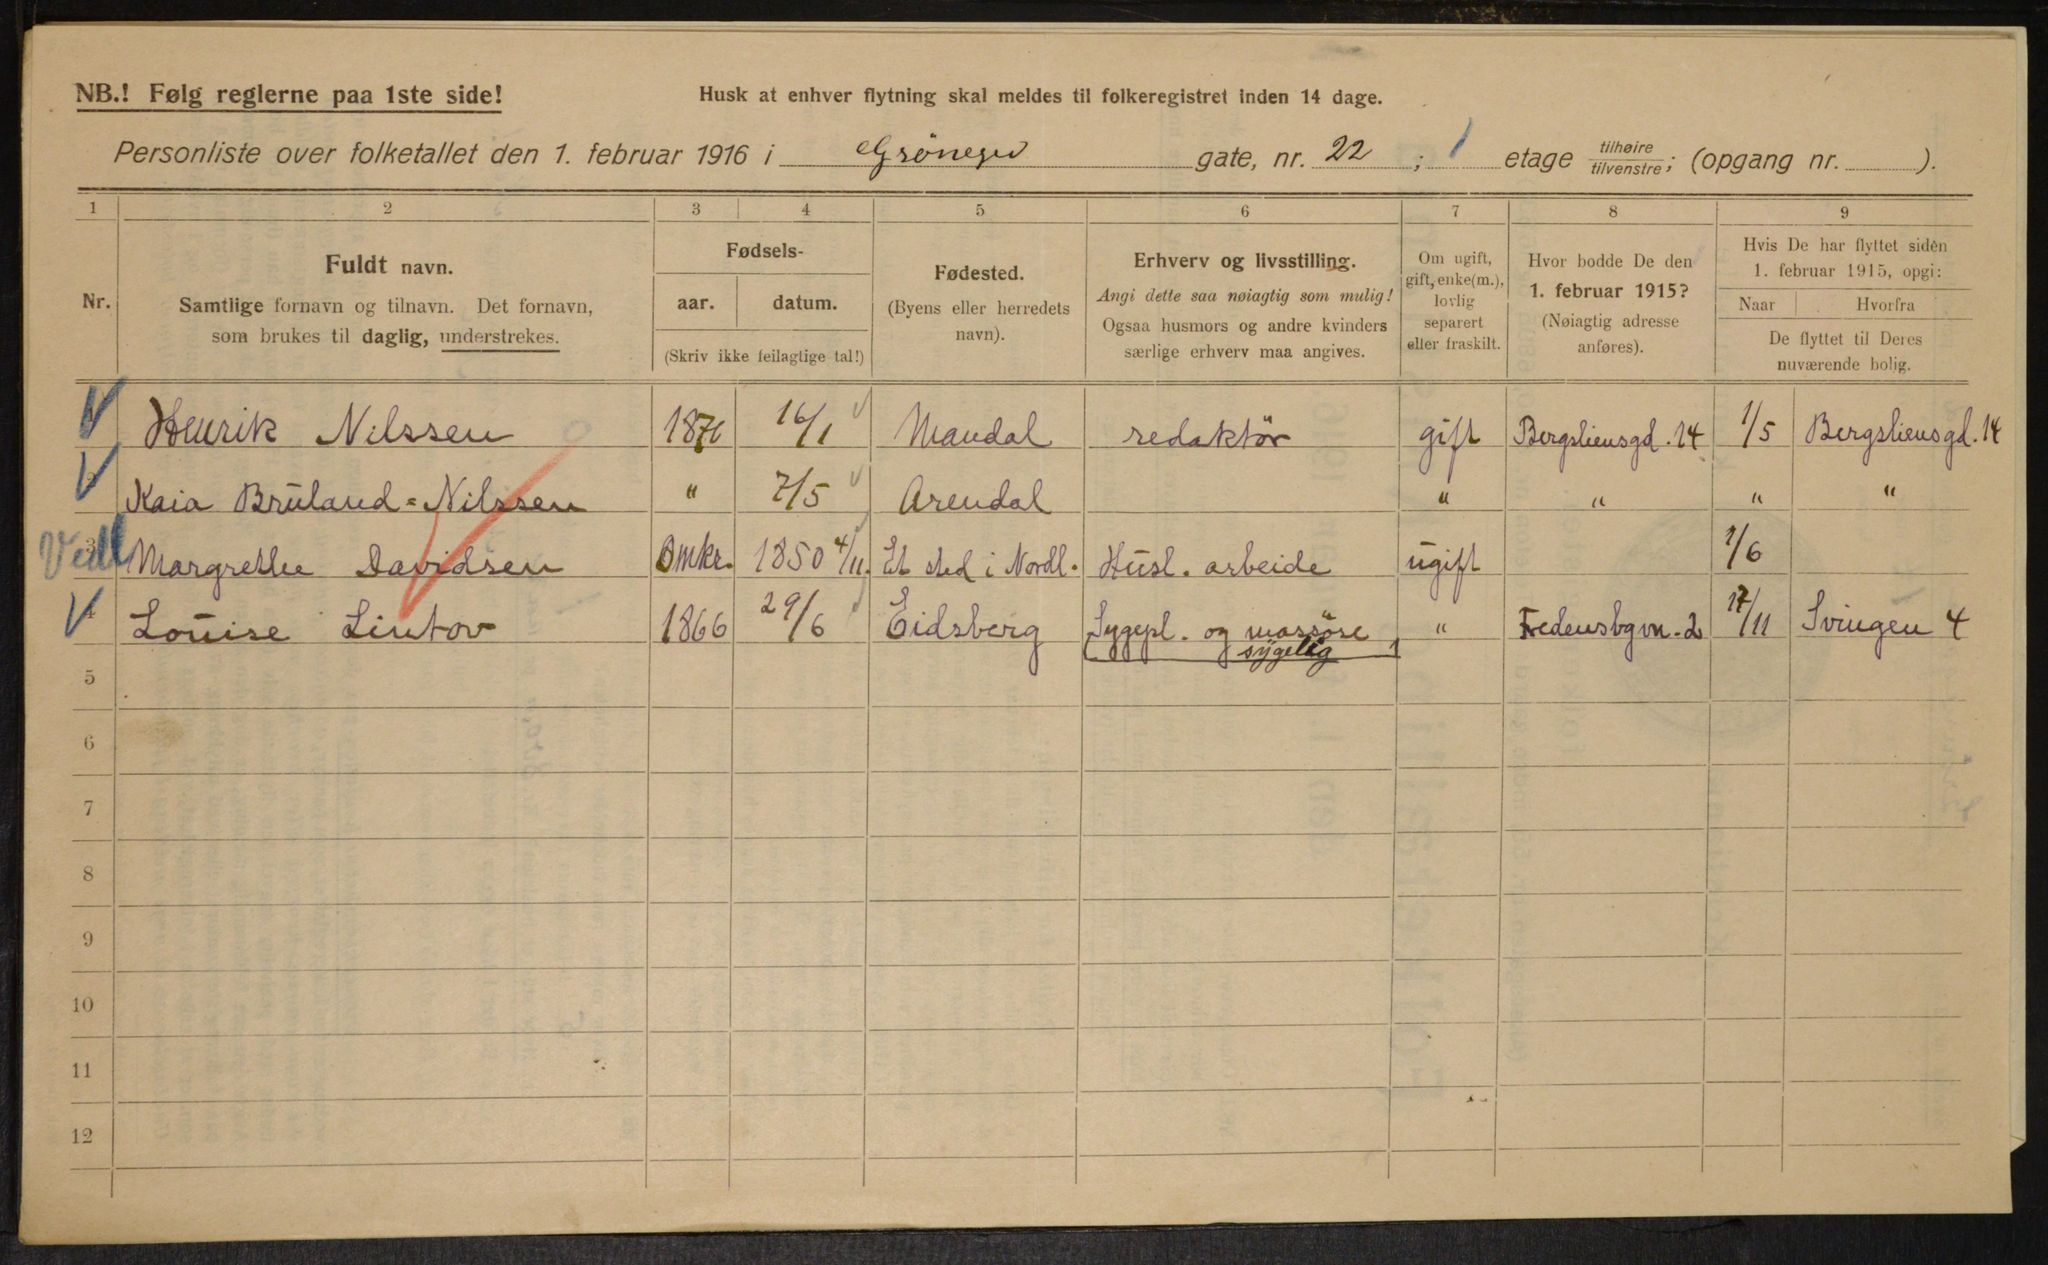 NB.! Følg reglerne paa 1ste side!
Husk at enhver flytning skal meldes til folkeregistret inden 14 dage.
Personliste over folketallet den 1. februar 1916 i Grönegd gate, nr. 22; 1 etage tilhøire/tilvenstre; (opgang nr. ).
1 2 3 4 5 6 7 8 9
Nr.
Fuldt navn.
Samtlige fornavn og tilnavn. Det fornavn,
som brukes til daglig, understrekes.
Fødsels-
aar. datum.
(Skriv ikke feilagtige tal!)
Fødested.
(Byens eller herredets
navn).
Erhverv og livsstilling.
Angi dette saa nøiagtig som mulig!
Ogsaa husmors og andre kvinders
særlige erhverv maa angives.
Om ugift,
gift, enke(m.),
lovlig
separert
eller fraskilt.
Hvor bodde De den
1. februar 1915?
(Nøiagtig adresse
anføres).
Hvis De har flyttet siden
1. februar 1915, opgi:
Naar Hvorfra
De flyttet til Deres
nuværende bolig.
Henrik Nilssen 1871 16/1 Mandal redaktör gift Bergsliensgd. 14 1/5 Bergsliensgd. 14
Kaia Bruland=Nilssen " 7/5 Arendal " " " "
3 Margrethe Davidsen Omkr. 1850 4/11. Et sted i Nordl. Husl. arbeide ugift 1/6
4 Louise Lintov 1866 29/6 Eidsberg Sygepl. og massöse " Fredensbgvn. 2 17/11 Svingen 4
sygelig
5
6
7
8
9
10
11
12